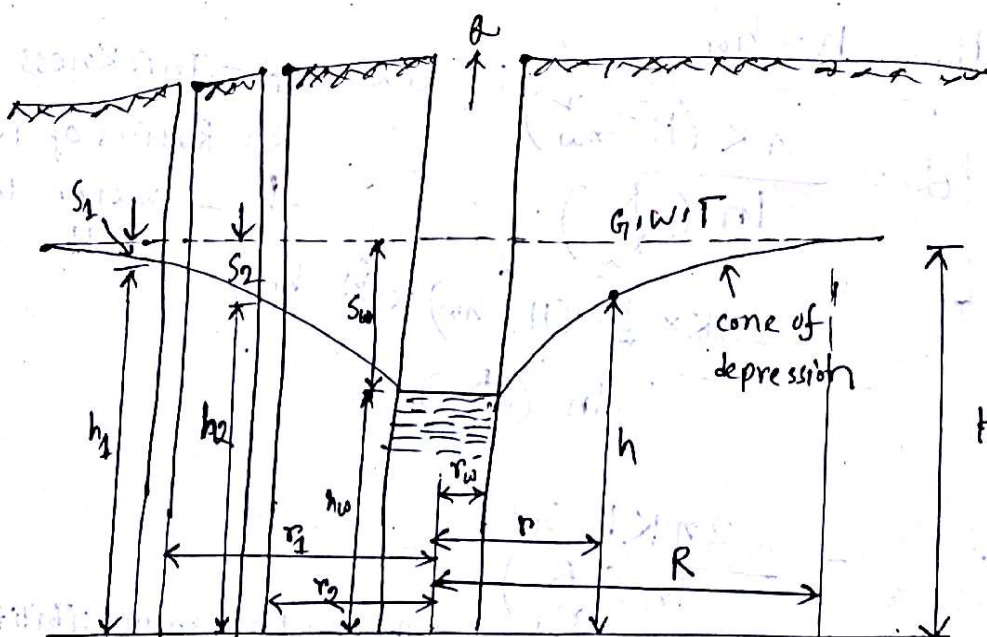 Q
S1
G.W.T.
S2
Sw
cone of
depression
h1
h2
hw
h
H
rw
r1
r
r2
R